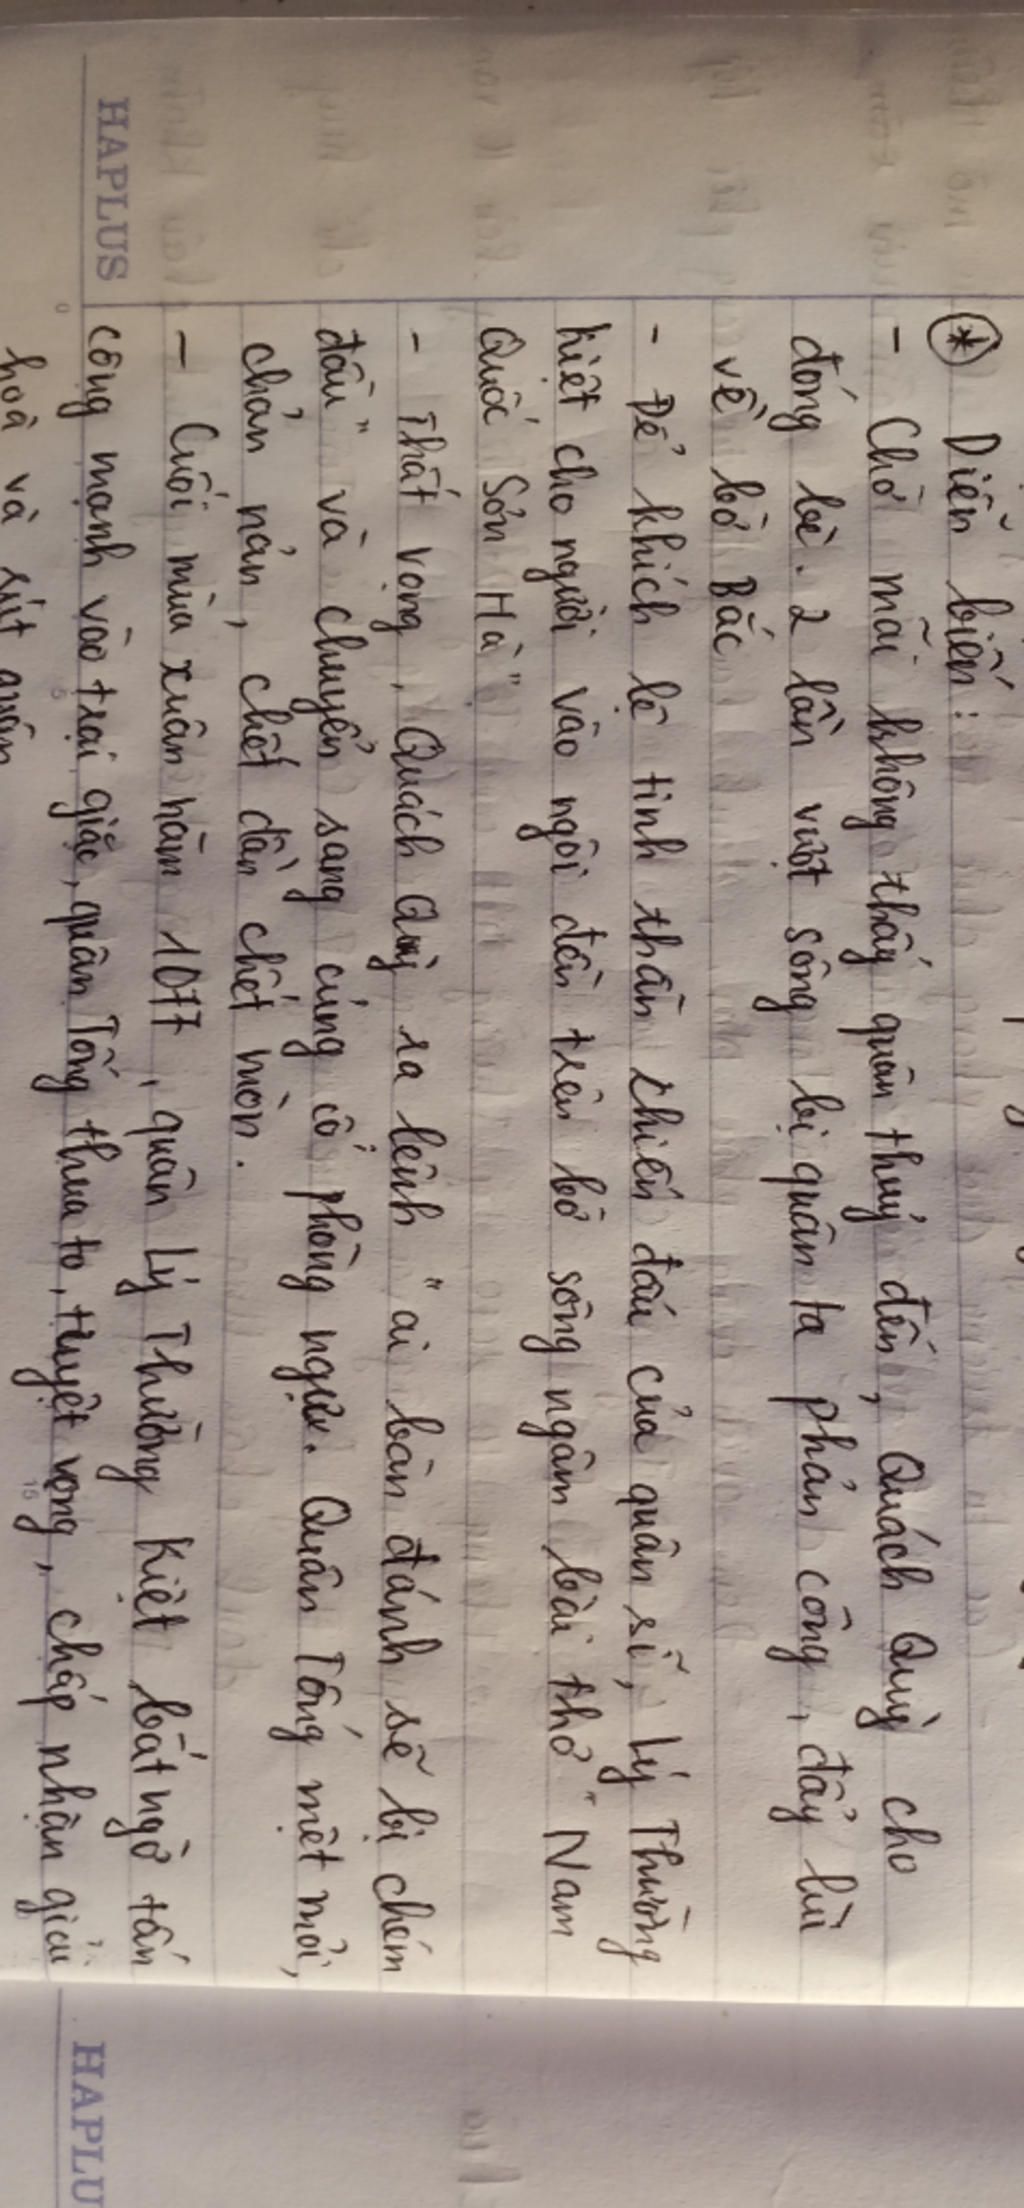 (*) Diễn biến:
- Chờ mãi không thấy quân thuỷ đến, Quách Quỳ cho
đóng bè. 2 lần vượt sông bị quân ta phản công, đẩy lùi
về bờ Bắc
- Để khích lệ tinh thần chiến đấu của quân sĩ, Lý Thường
Kiệt cho người vào ngôi đền trên bờ sông ngâm bài thơ "Nam
Quốc Sơn Hà"
- Thất vọng, Quách Quỳ ra lệnh "ai bàn đánh sẽ bị chém
đầu" và chuyển sang củng cố phòng ngự. Quân Tống mệt mỏi,
chán nản, chết dần chết mòn.
- Cuối mùa xuân năm 1077, quân Lý Thường Kiệt bất ngờ tấn
công mạnh vào trại giặc, quân Tống thua to, tuyệt vọng, chấp nhận giải
hoà và rút quân
HAPLUS
HAPLU